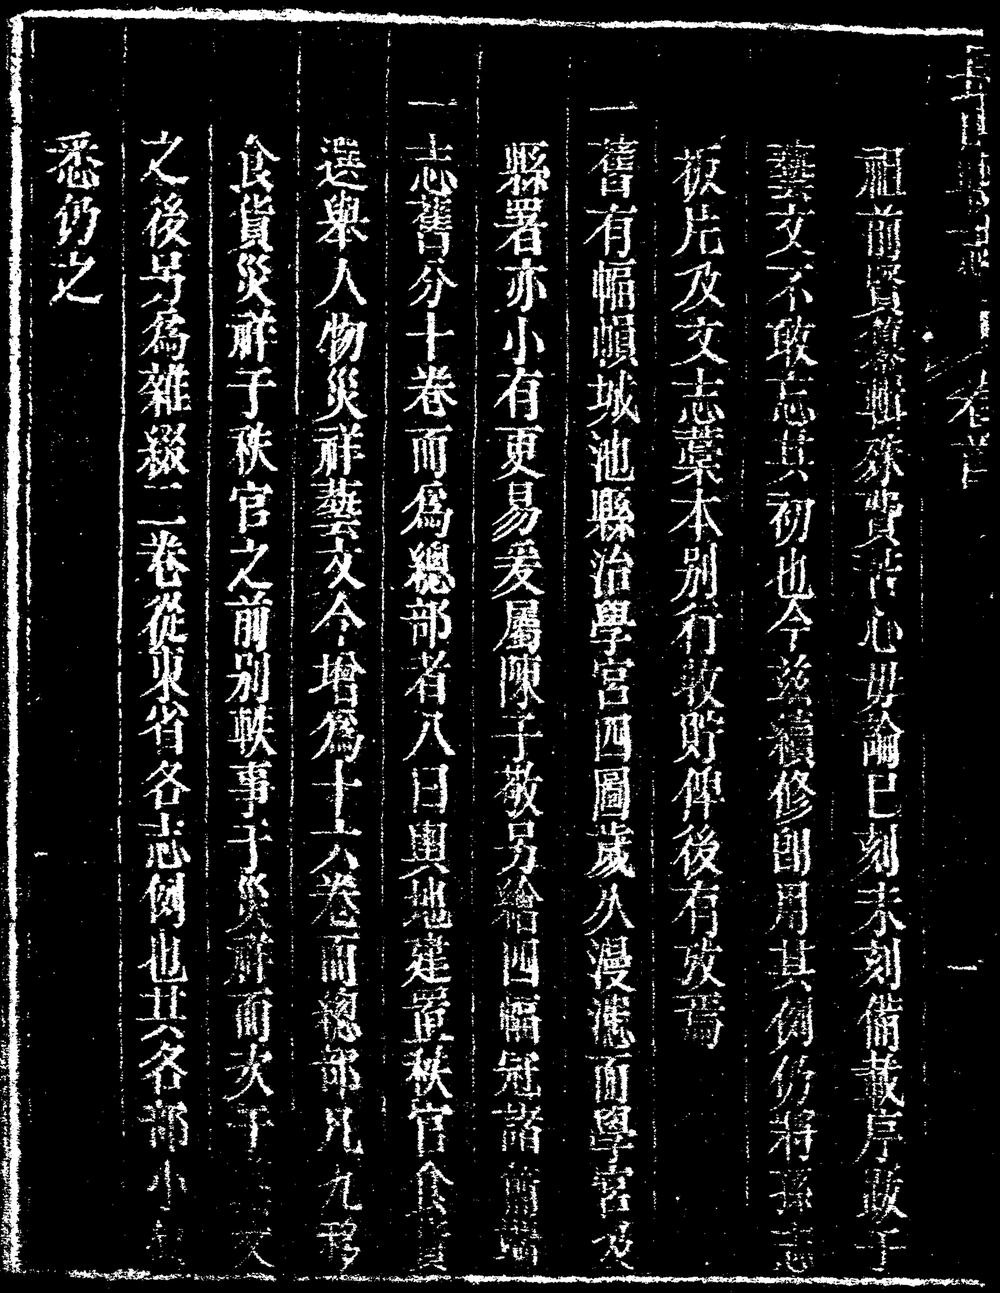 祖前賢纂輯殊費苦心毋論已刻未刻備載序跋于
藝文不敢忘其初也今玆續修卽用其例仍將孫志
板片及文志藁本別行收貯俾後有攷焉
一舊有幅幀城池縣治學宮四圖歲久漫漶而學宮及
縣署亦小有更易爰屬陳子敬另繪四幅冠諸簡端
一志舊分十卷而爲總部者八曰輿地建置秩官食貨
選舉人物災祥藝文今增爲十六卷而總部凡九移
食貨災祥于秩官之前別軼事于災祥而次于文
之後另爲雜綴二卷從東省各志例也其各部小
悉仍之
卷首
一